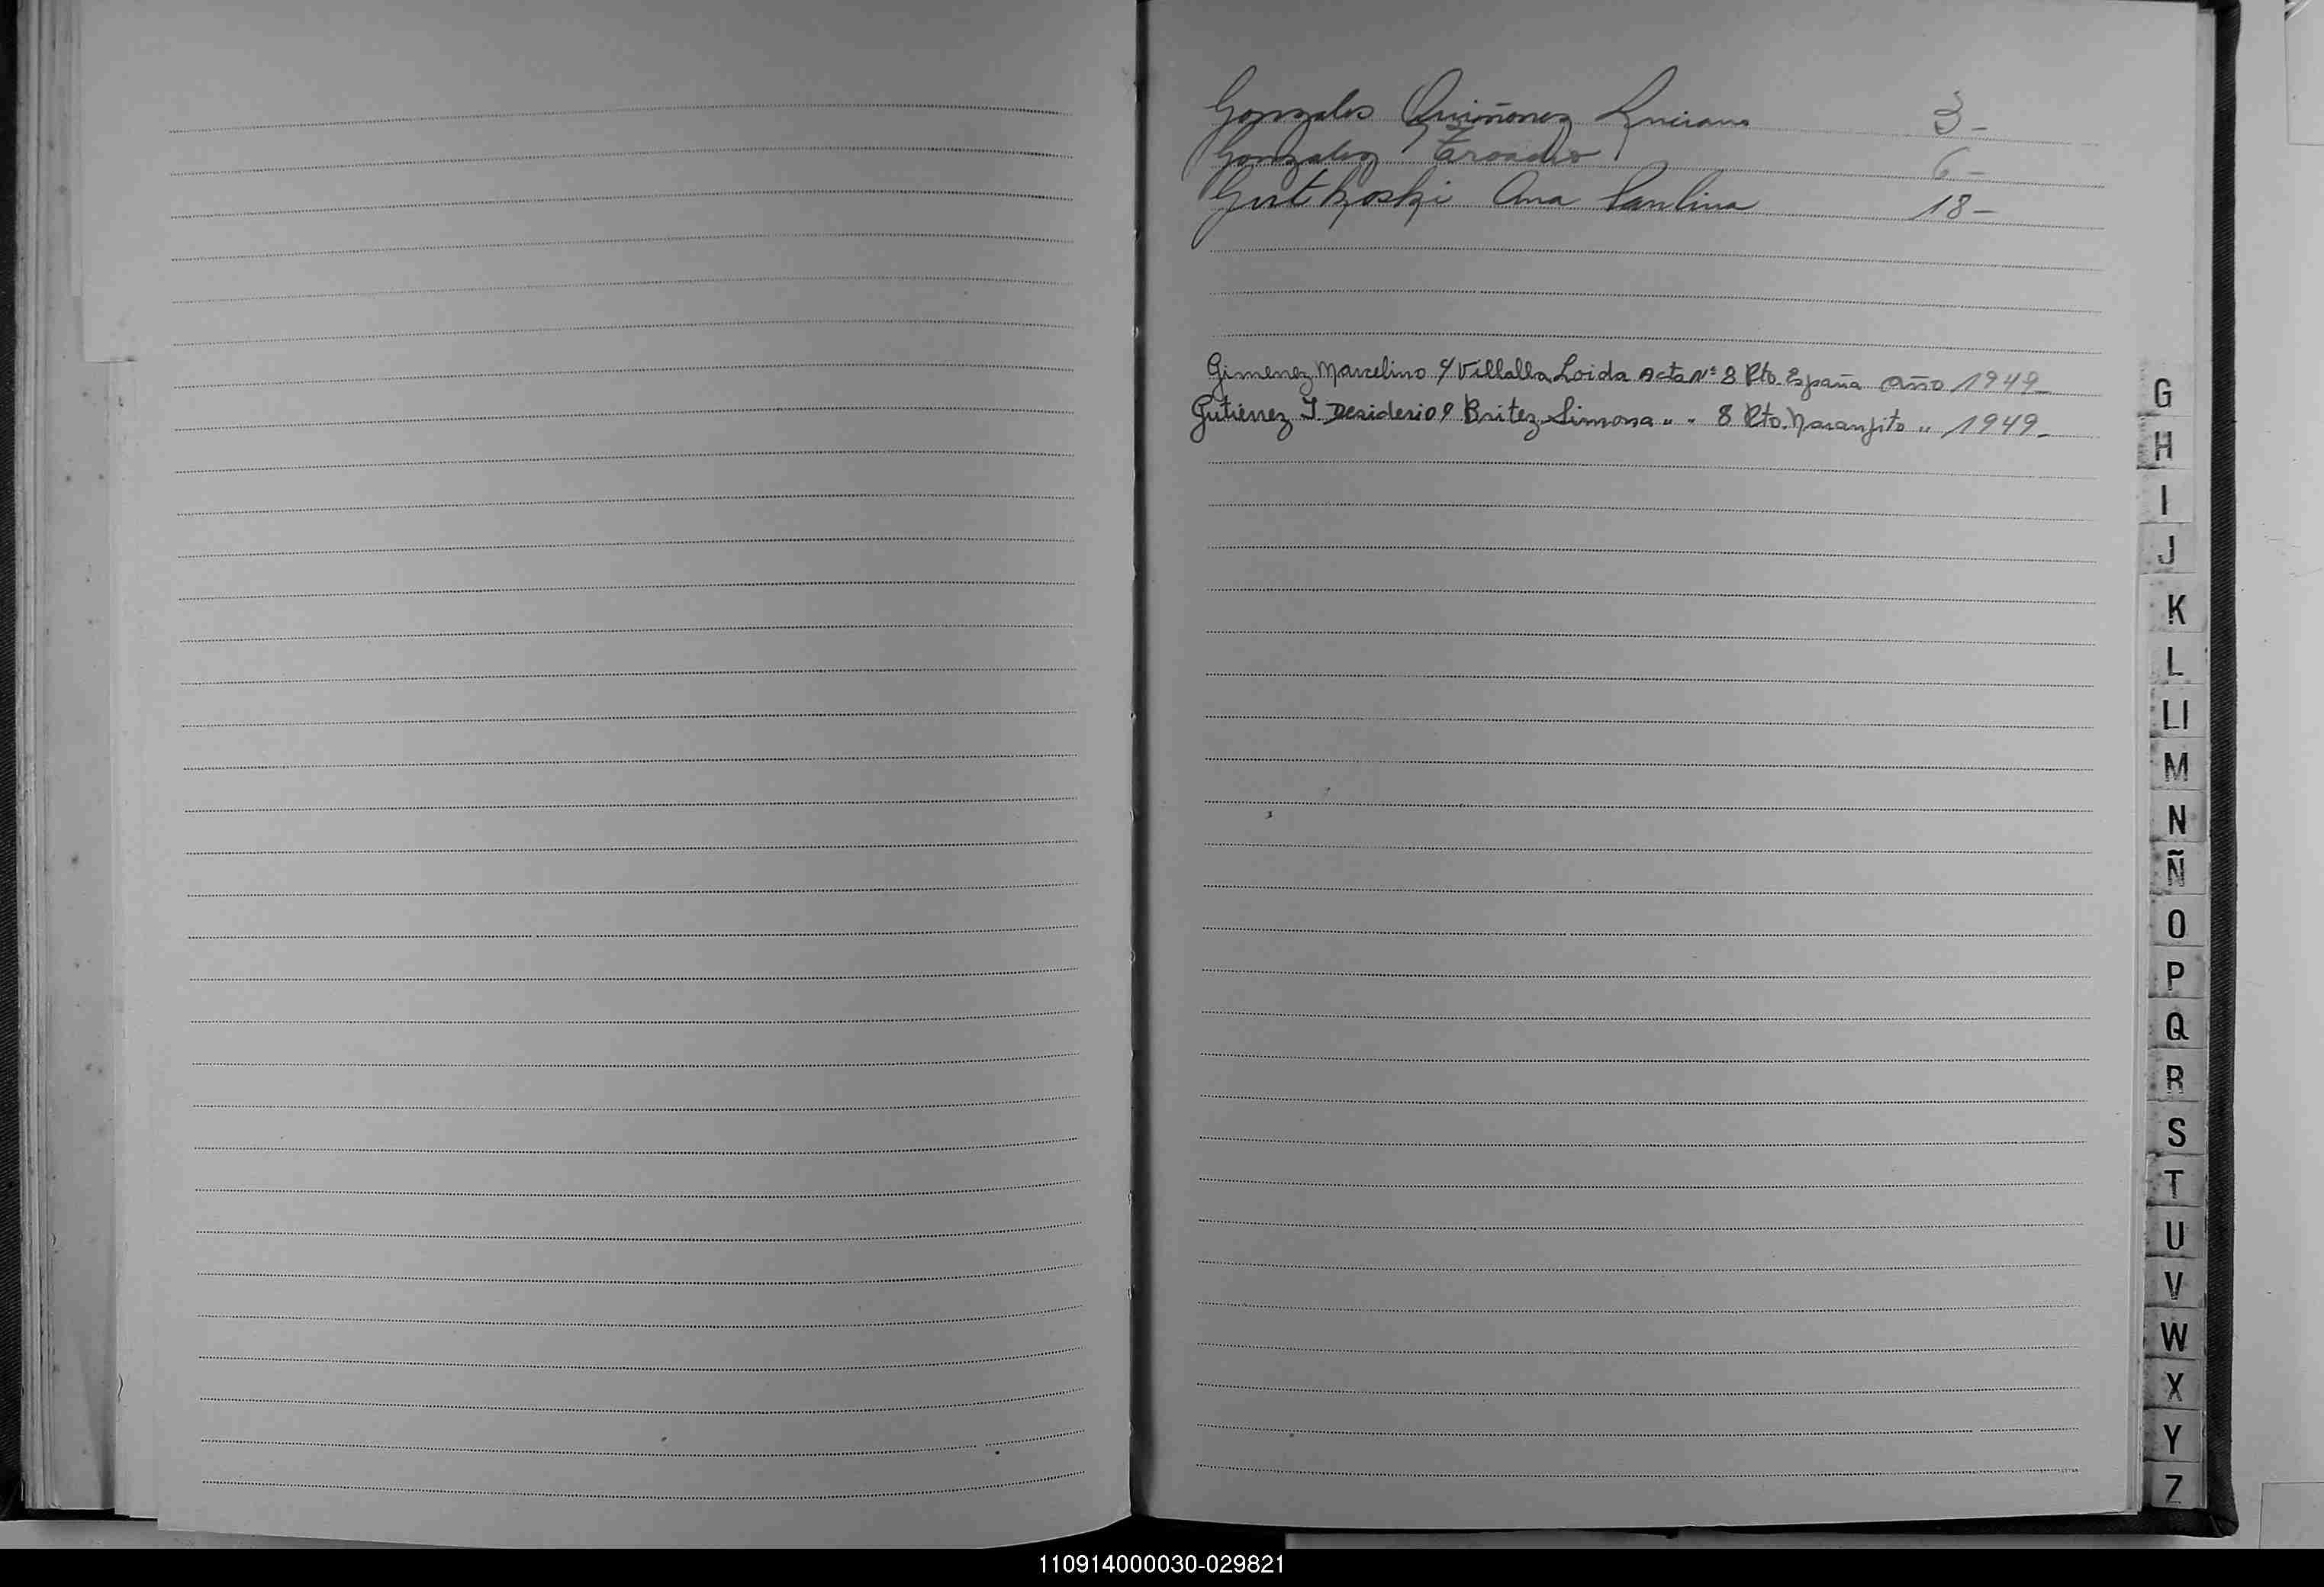 Gonzales Quiñonez Luciano 3-
Gonzalez Eroadio 6-
Gutkoski Ana Paulina 18-
Gimenez Marcelino c/ Villalba Loida Acta Nº 8 Pto. España año 1949-
Gutierrez I. Desiderio c/ Britez Simona " " 8 Pto. Naranjito " 1949-
G
H
I
J
K
L
Ll
M
N
Ñ
O
P
Q
R
S
T
U
V
W
X
Y
Z
110914000030-029821